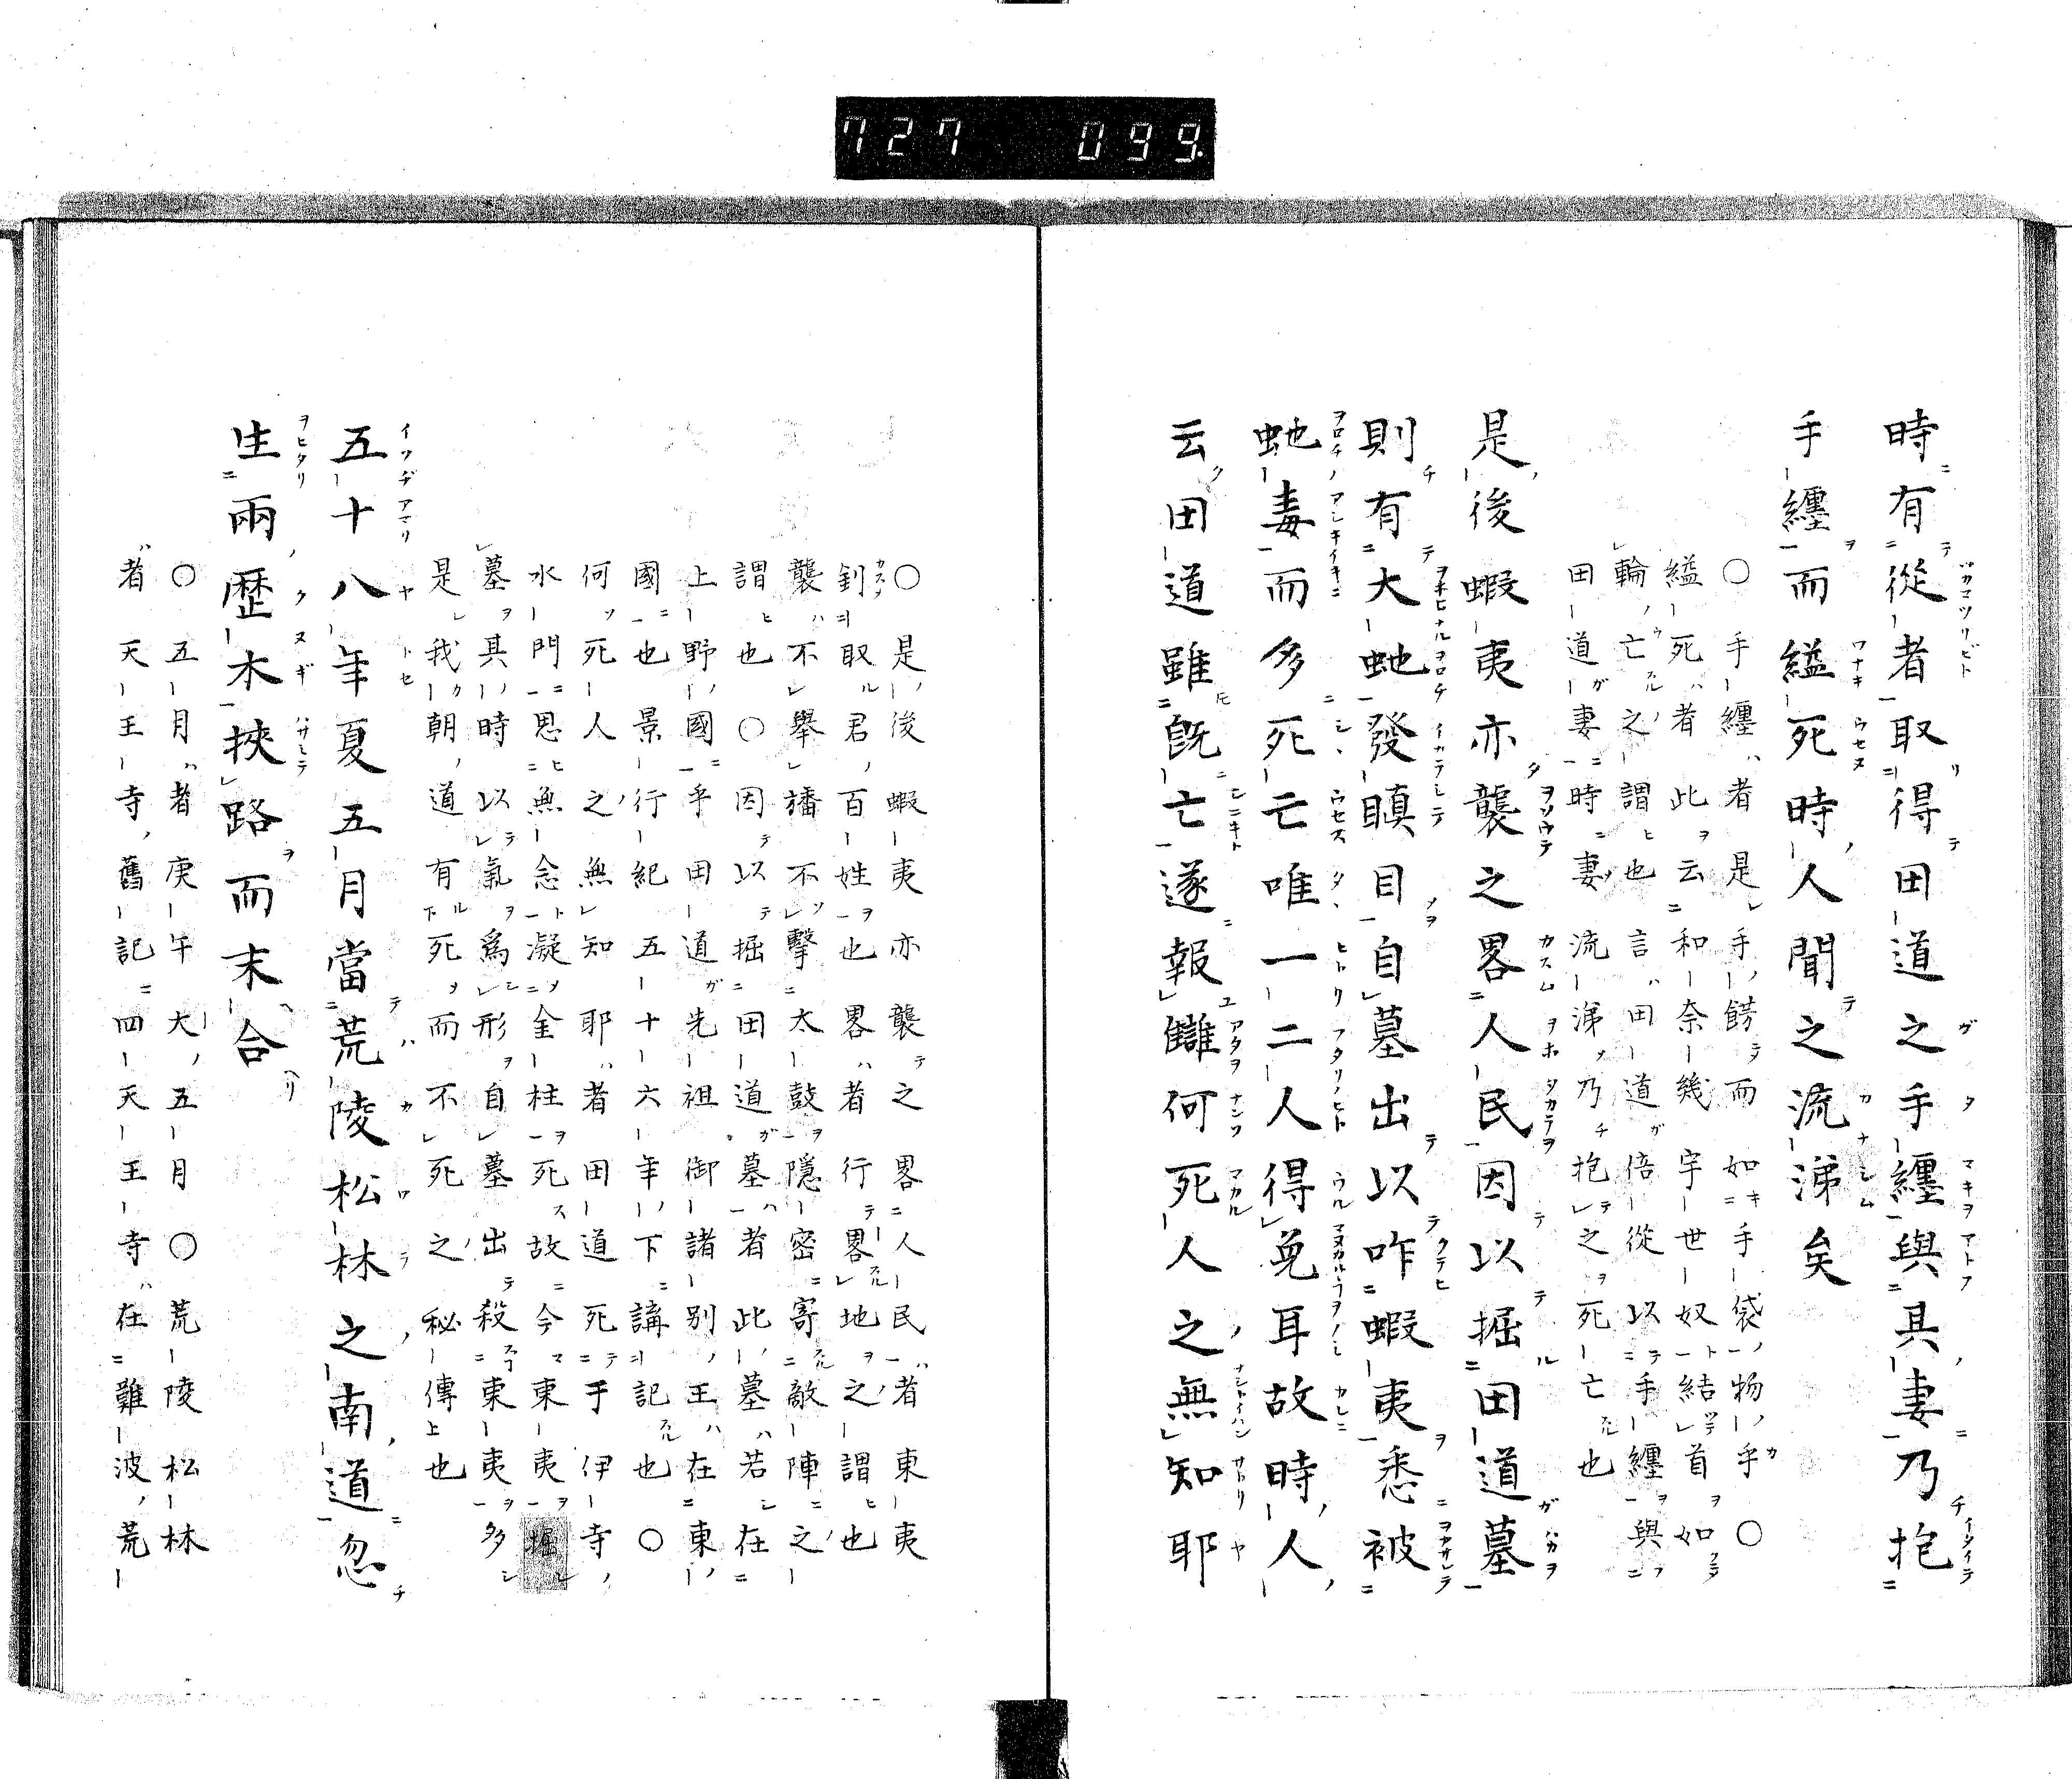 727 099
時有從者取得田道之手纏與其妻乃抱
手纏而縊死時人聞之流涕矣
○手纏者是手餝而如手袋物手○
縊死者此云和奈幾宇世奴結首如
輪亡之謂也言田道倍從以手纏與
田道妻時妻流涕乃抱之死亡也
是後蝦夷亦襲之畧人民因以掘田道墓
則有大虵發瞋目自墓出以咋蝦夷悉被
虵毒而多死亡唯一二人得免耳故時人
云田道雖旣亡遂報讎何死人之無知耶
○是後蝦夷亦襲之畧人民者東夷
釗取君百姓也畧者行畧地之謂也
襲不舉旙不擊太鼓隱密寄敵陣之
謂也○因以掘田道墓者此墓若在
上野國乎田道先祖御諸別王在東
國也景行紀五十六年下講記也○
何死人之無知耶者田道死于伊寺
水門思無念凝金柱死故今東夷掘
墓其時以氣爲形自墓出殺東夷多
是我朝道有死而不死之秘傳也
五十八年夏五月當荒陵松林之南道忽
生兩歴木挾路而末合
○五月者庚午大五月○荒陵松林
者天王寺舊記四天王寺在難波荒